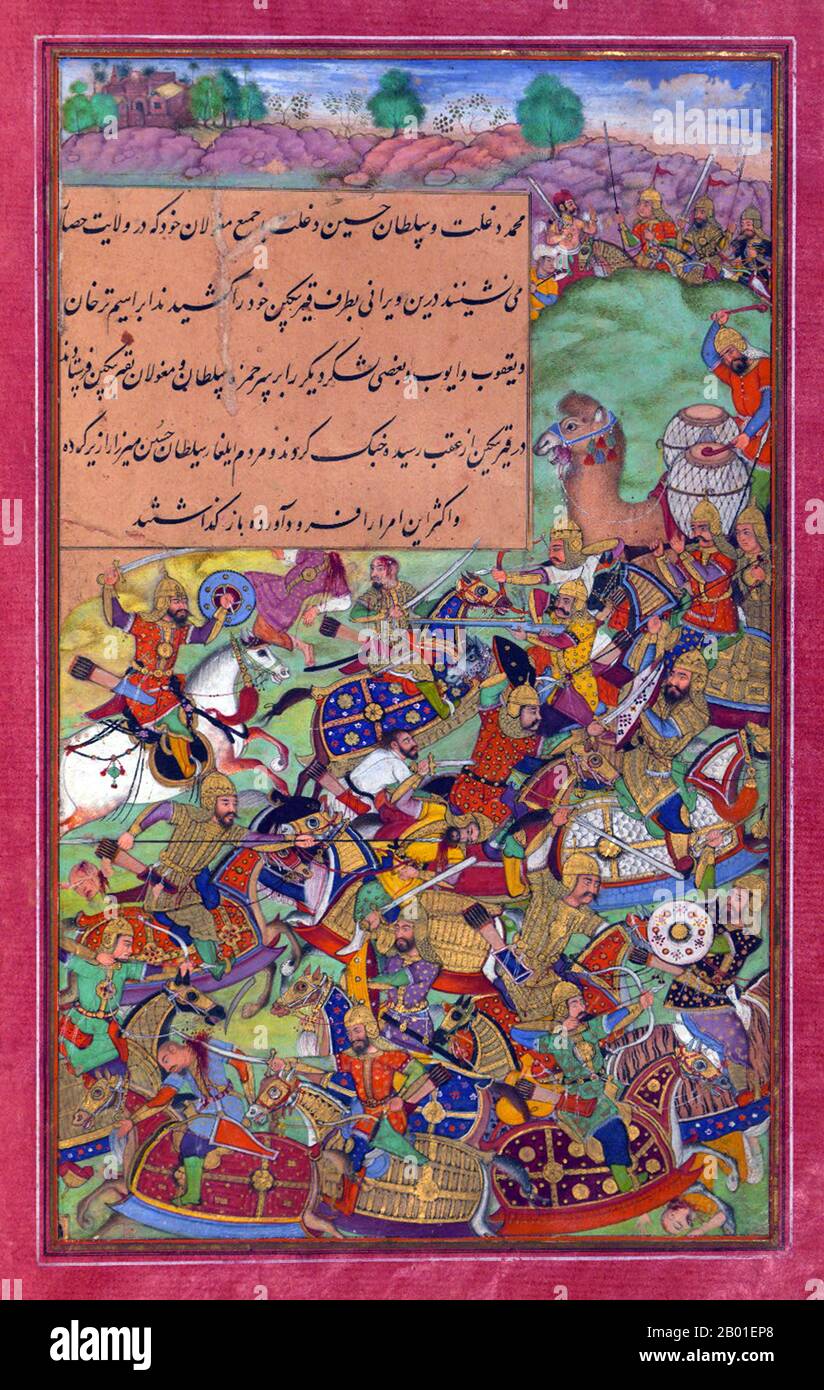 محمد دغلت و سلطان حسین دغلت با جمع مغولان خود که در ولایت حصار
می نشینند درین ویرانی بطرف قیر تکین خود را کشیدند ابراهیم ترخان
و یعقوب و ایوب و بعضی لشکر دیگر را بر سر حمزه سلطان و مغولان بقیر تکین فرستادند
در قیر تکین از عقب رسیده جنگ کردند و مردم ایلغار سلطان حسین میرزا را زیر کرده
و اکثر این امرا را فرود آورده باز گذاشتند
alamy
alamy
Image ID: 2B01EP8
www.alamy.com